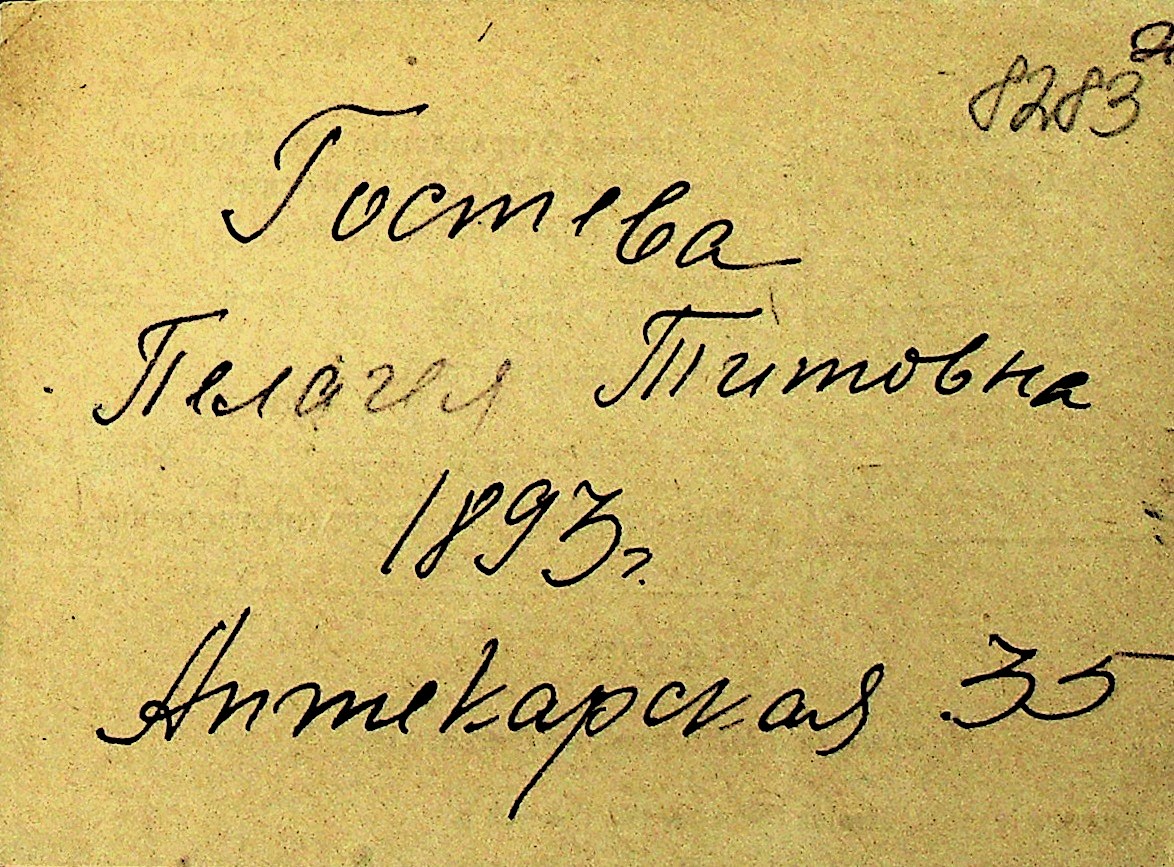 8283
Гостева
Пелагея Титовна
1893г.
Аптекарская 35